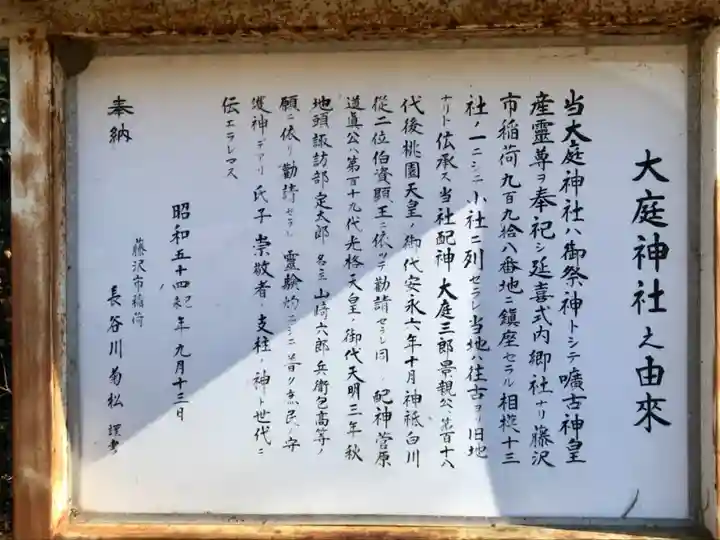 大庭神社之由來
当大庭神社ハ御祭神トシテ曠古神皇
産靈尊ヲ奉祀シ延喜式内郷社ナリ藤沢
市稲荷九百九拾八番地ニ鎮座セラル相模十三
社ノ一ニシテ小社ニ列セラレ当地ハ往古ヨリ旧地
ナリト伝承ス当社配神大庭三郎景親公ハ第百十八
代後桃園天皇ノ御代安永六年十月神祇白川
從二位伯資顯王ニ依ツテ勸請セラレ同ジ配神菅原
道眞公ハ第百十九代光格天皇ノ御代天明三年秋
地頭諏訪部定太郎名主山崎六郎兵衛包高等ノ
願ニ依リ勸請セラレ靈驗灼ニシテ普ク庶民ノ守
護神デアリ氏子崇敬者ノ支柱ノ神ト世代ニ
伝エラレマス
昭和五十四年九月十三日
藤沢市稲荷
奉納 長谷川菊松